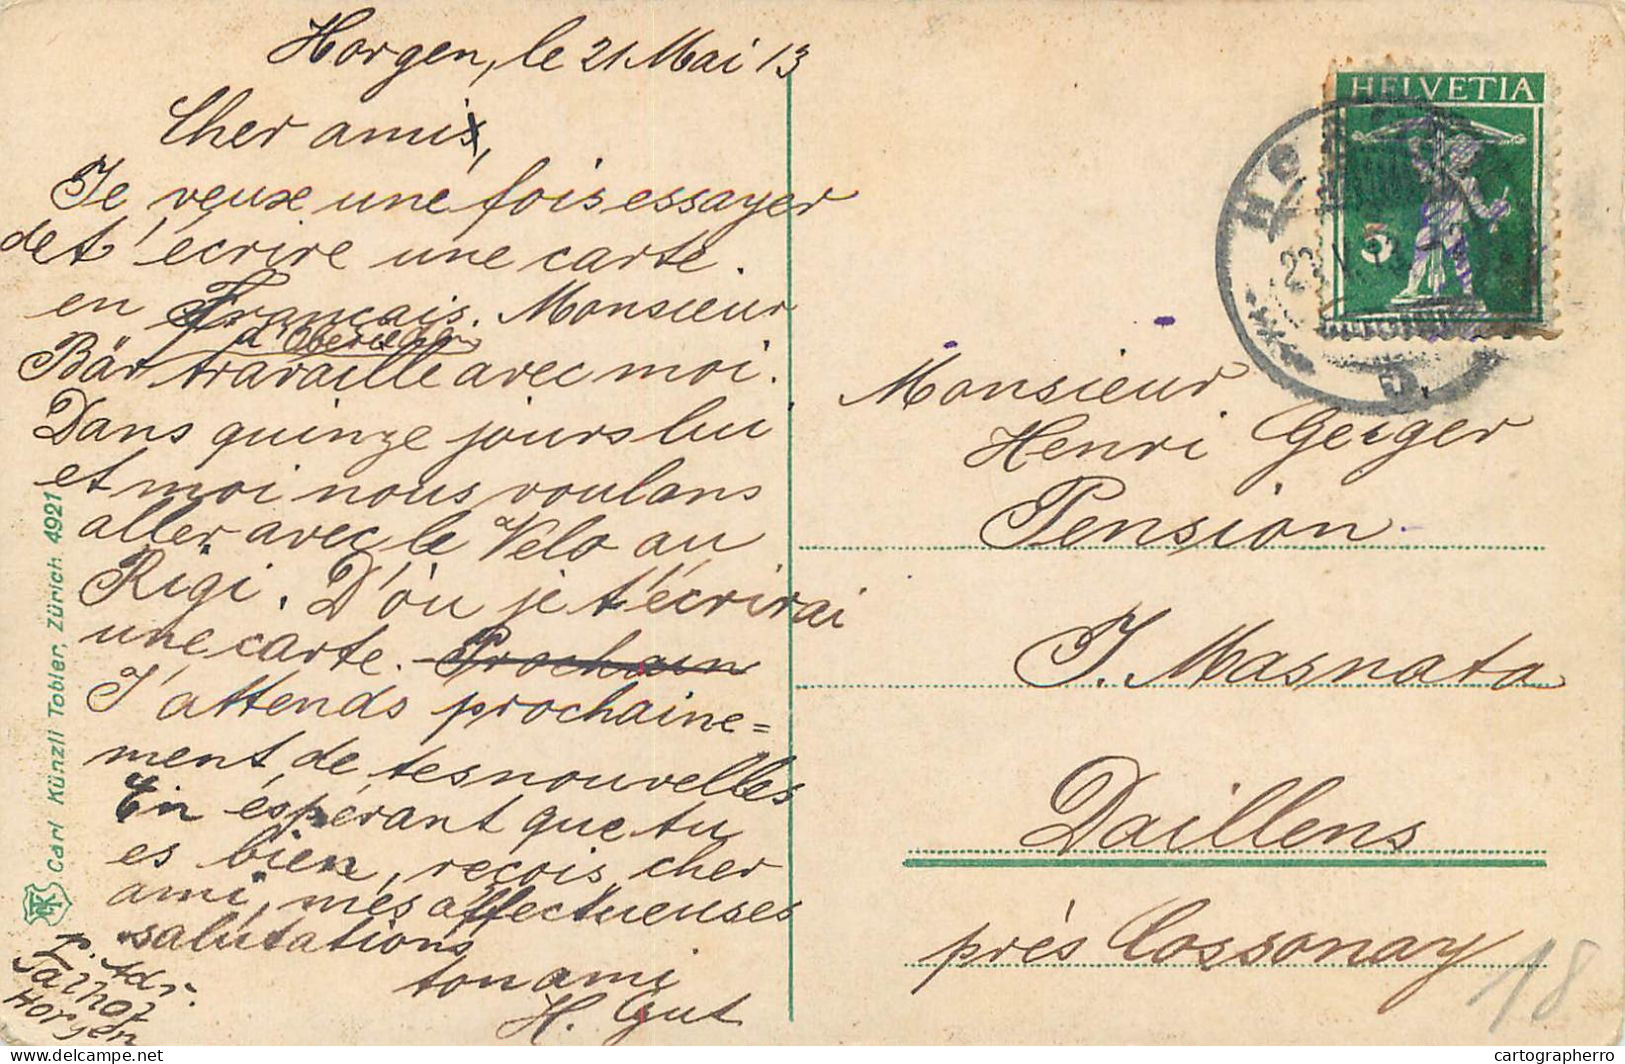 Horgen, le 21 Mai 13
Cher ami,
Je veux une fois essayer
de t'ecrire une carte.
en Français. Monsieur
Bär travaille avec moi.
Dans quinze jours lui
et moi nous voulans
aller avec le Velo au
Rigi. D'òu je t'écrirai
une carte. Prochain
J'attends prochaine=
ment, de tes nouvelles
En éspérant que tu
es bien, reçois, cher
ami, mes affectueuses
salutations
ton ami
H. Gut
p. Adr.
Horgen
Carl Künzli Tobler, Zürich 4921
HELVETIA
5
Monsieur
Henri Geiger
Pension
J. Masnata
Daillens
près Cossonay
18
cartographerro